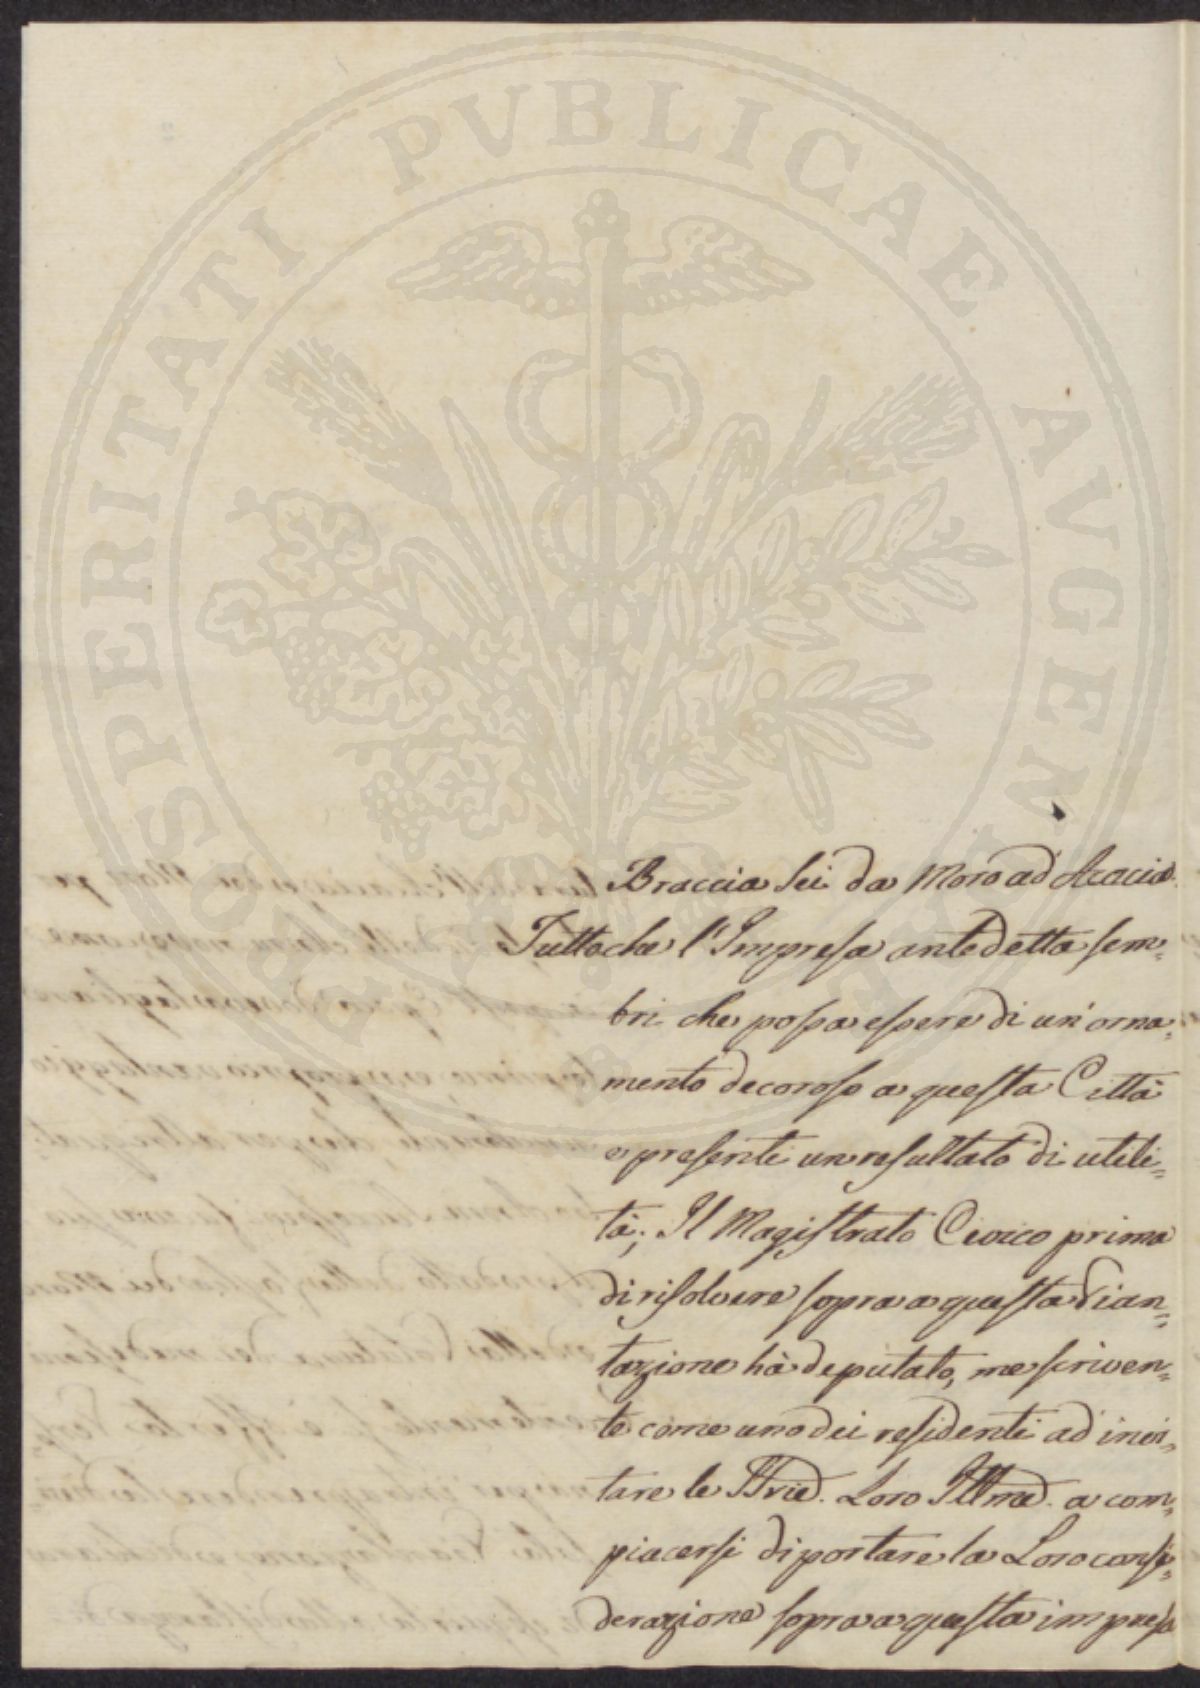 PROSPERITATI PUBLICAE AUGENDAE
Braccia Sei da Moro ad Acacia.
Tuttoche l'Impresa antedetta sem=
bri che possa essere di un' orna=
mento decoroso a questa Città
e presenti un resultato di utili=
tà; Il Magistrato Civico prima
di risolvere sopra a questa Pian=
tazione hà deputato, me scriven=
te come uno dei residenti ad invi=
tare le
Loro Illme. a com=
piacersi di portare la Loro consi=
derazione sopra a questa impresa